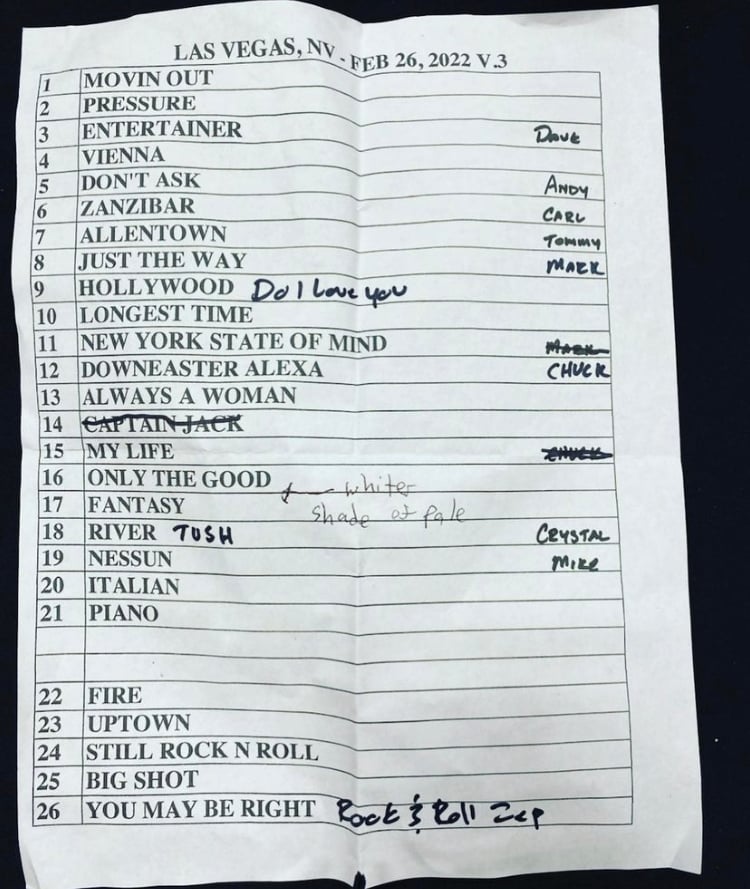 LAS VEGAS, NV - FEB 26, 2022 V.3
1 MOVIN OUT
2 PRESSURE
3 ENTERTAINER Dave
4 VIENNA
5 DON'T ASK ANDY
6 ZANZIBAR CARL
7 ALLENTOWN Tommy
8 JUST THE WAY MARK
9 HOLLYWOOD Do I Love you
10 LONGEST TIME
11 NEW YORK STATE OF MIND MARK
12 DOWNEASTER ALEXA CHUCK
13 ALWAYS A WOMAN
14 CAPTAIN JACK
15 MY LIFE CHUCK
16 ONLY THE GOOD
whiter
17 FANTASY
Shade of pale
18 RIVER TUSH CRYSTAL
19 NESSUN MIKE
20 ITALIAN
21 PIANO
22 FIRE
23 UPTOWN
24 STILL ROCK N ROLL
25 BIG SHOT
26 YOU MAY BE RIGHT Rock & Roll Zep